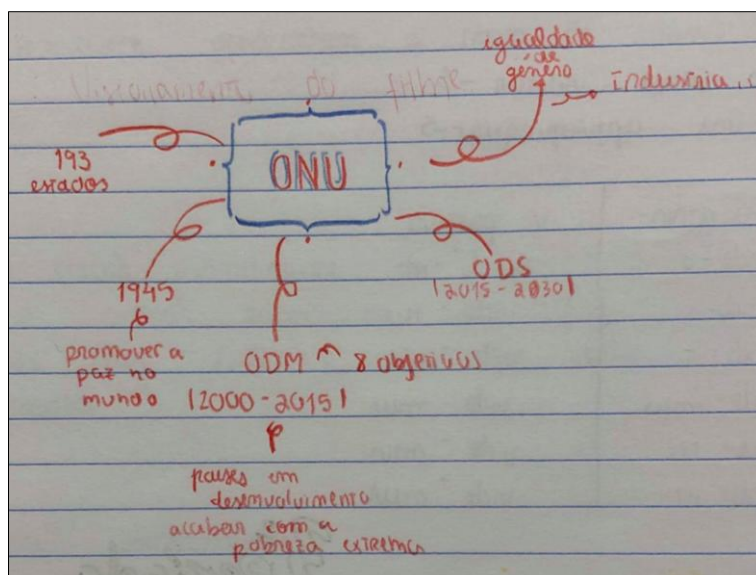 igualdade
de
género
Industria,
ONU
193
estados
1945
promover a
paz no
mundo
ODS
|2015-2030|
ODM 8 objetivos
|2000-2015|
países em
desenvolvimento
acabar com a
pobreza extrema